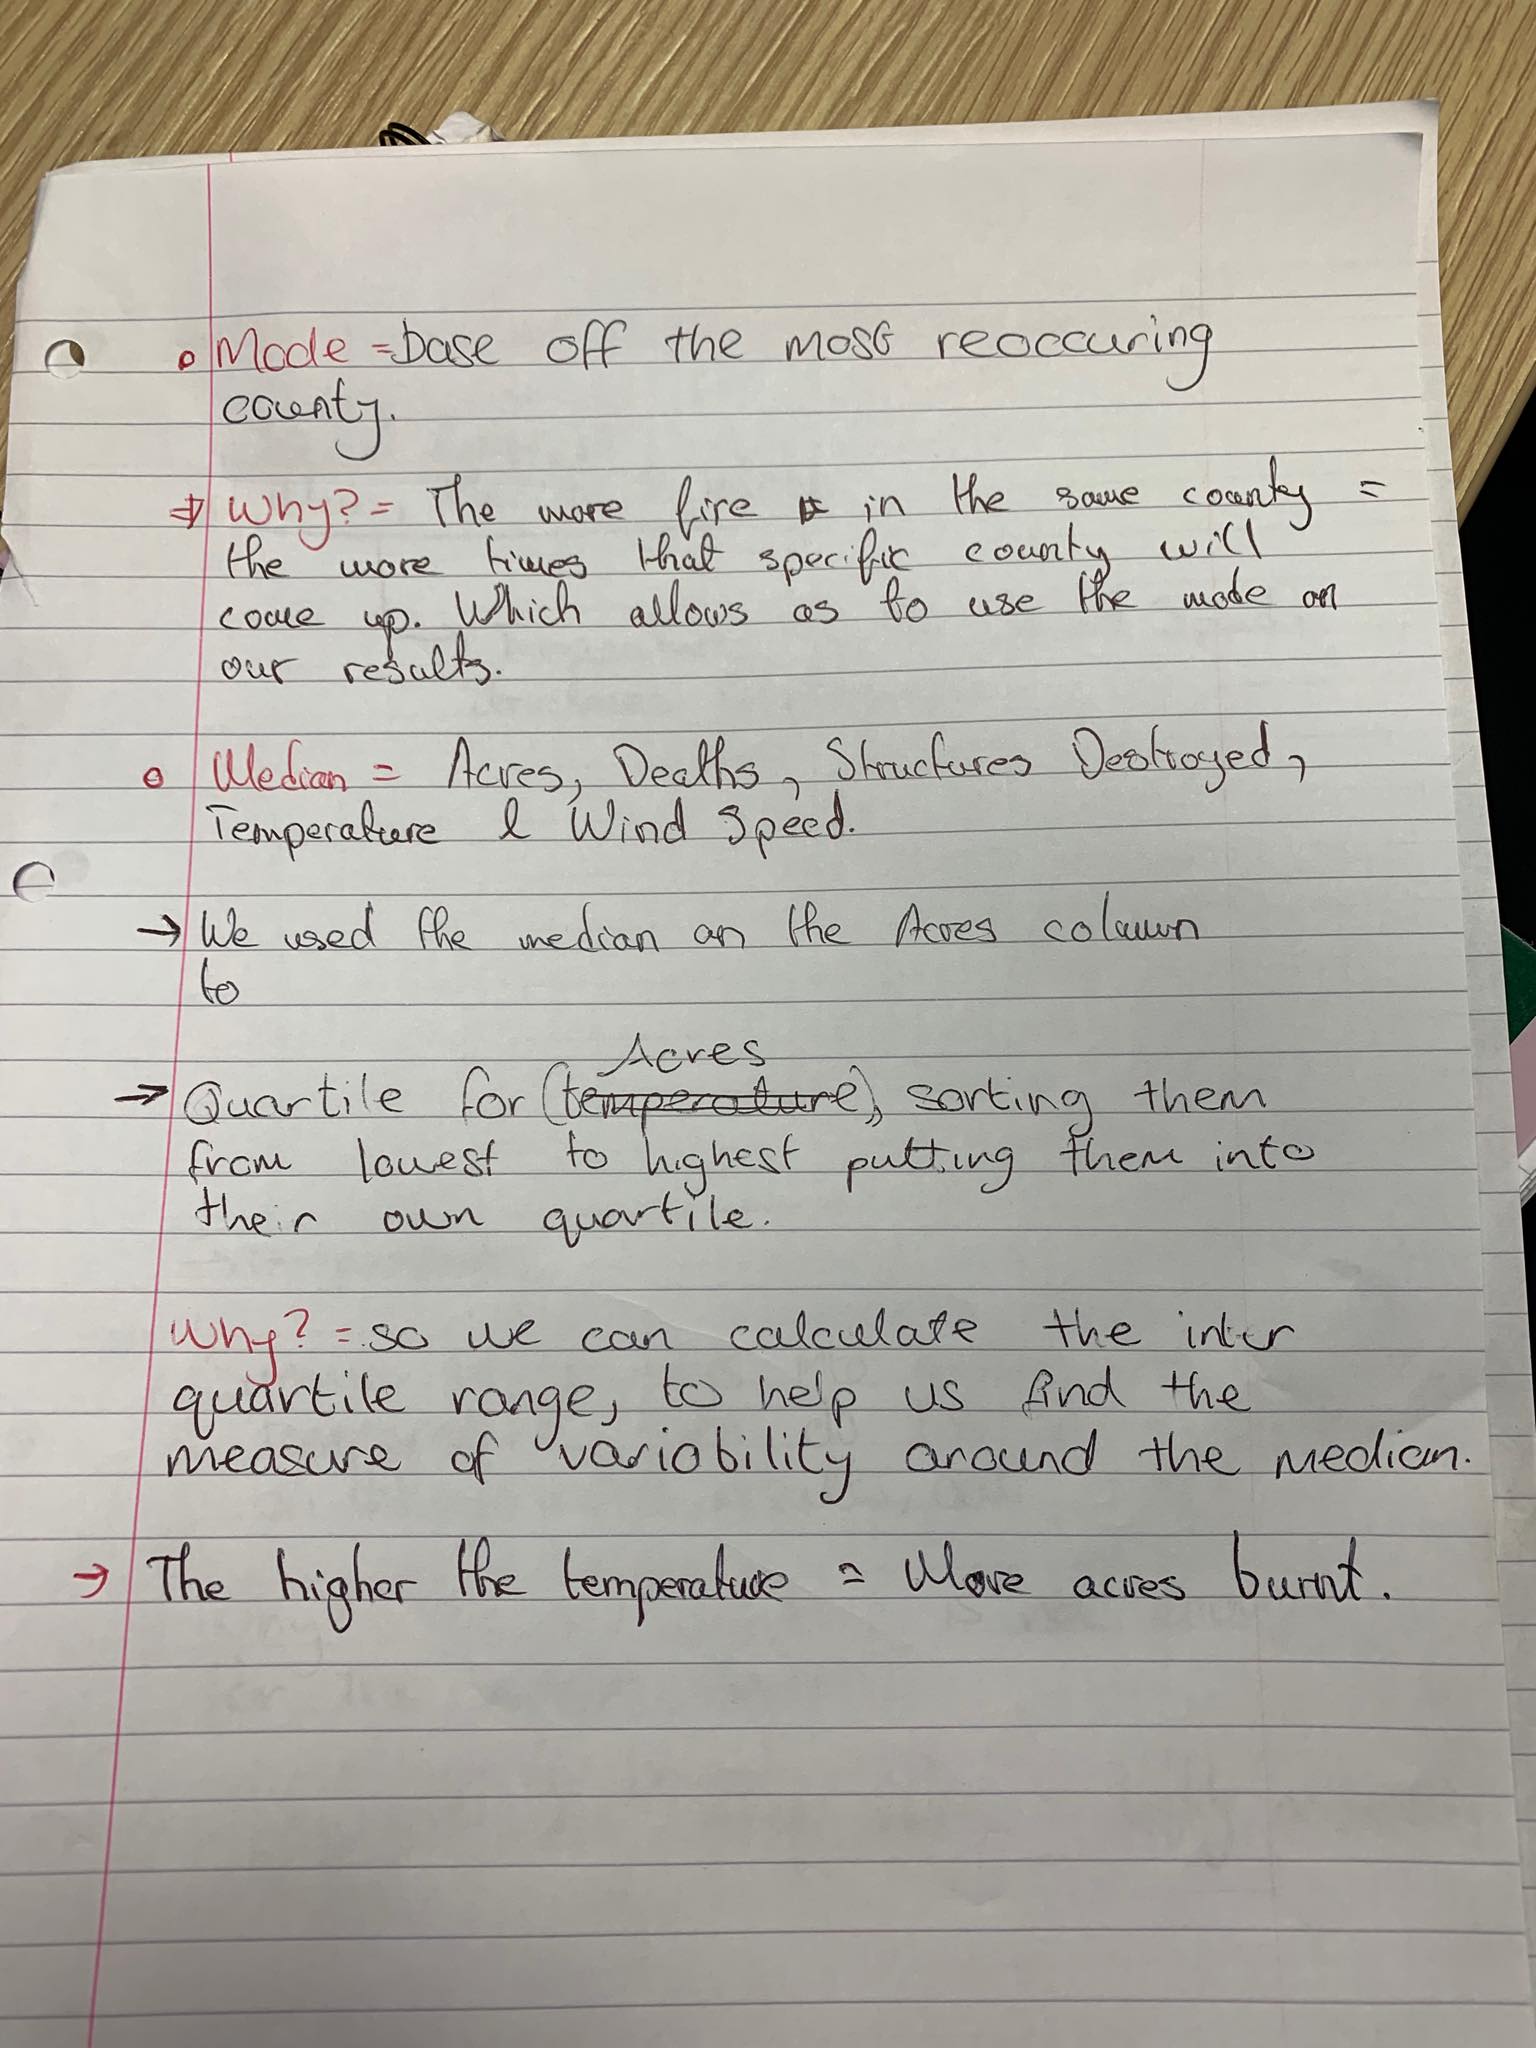 Mode = base off the most reoccuring
county.
Why? = The more fire in the same county =
the more times that specific county will
come up. Which allows as to use the mode on
our results.
Median = Acres, Deaths, Structures Destroyed,
Temperature & Wind Speed.
→ We used the median on the Acres column
to
Acres
→ Quartile for (temperature), sorting them
from lowest to highest putting them into
their own quartile.
Why? = so we can calculate the inter
quartile range, to help us find the
measure of variability around the median.
→ The higher the temperature = More acres burnt.